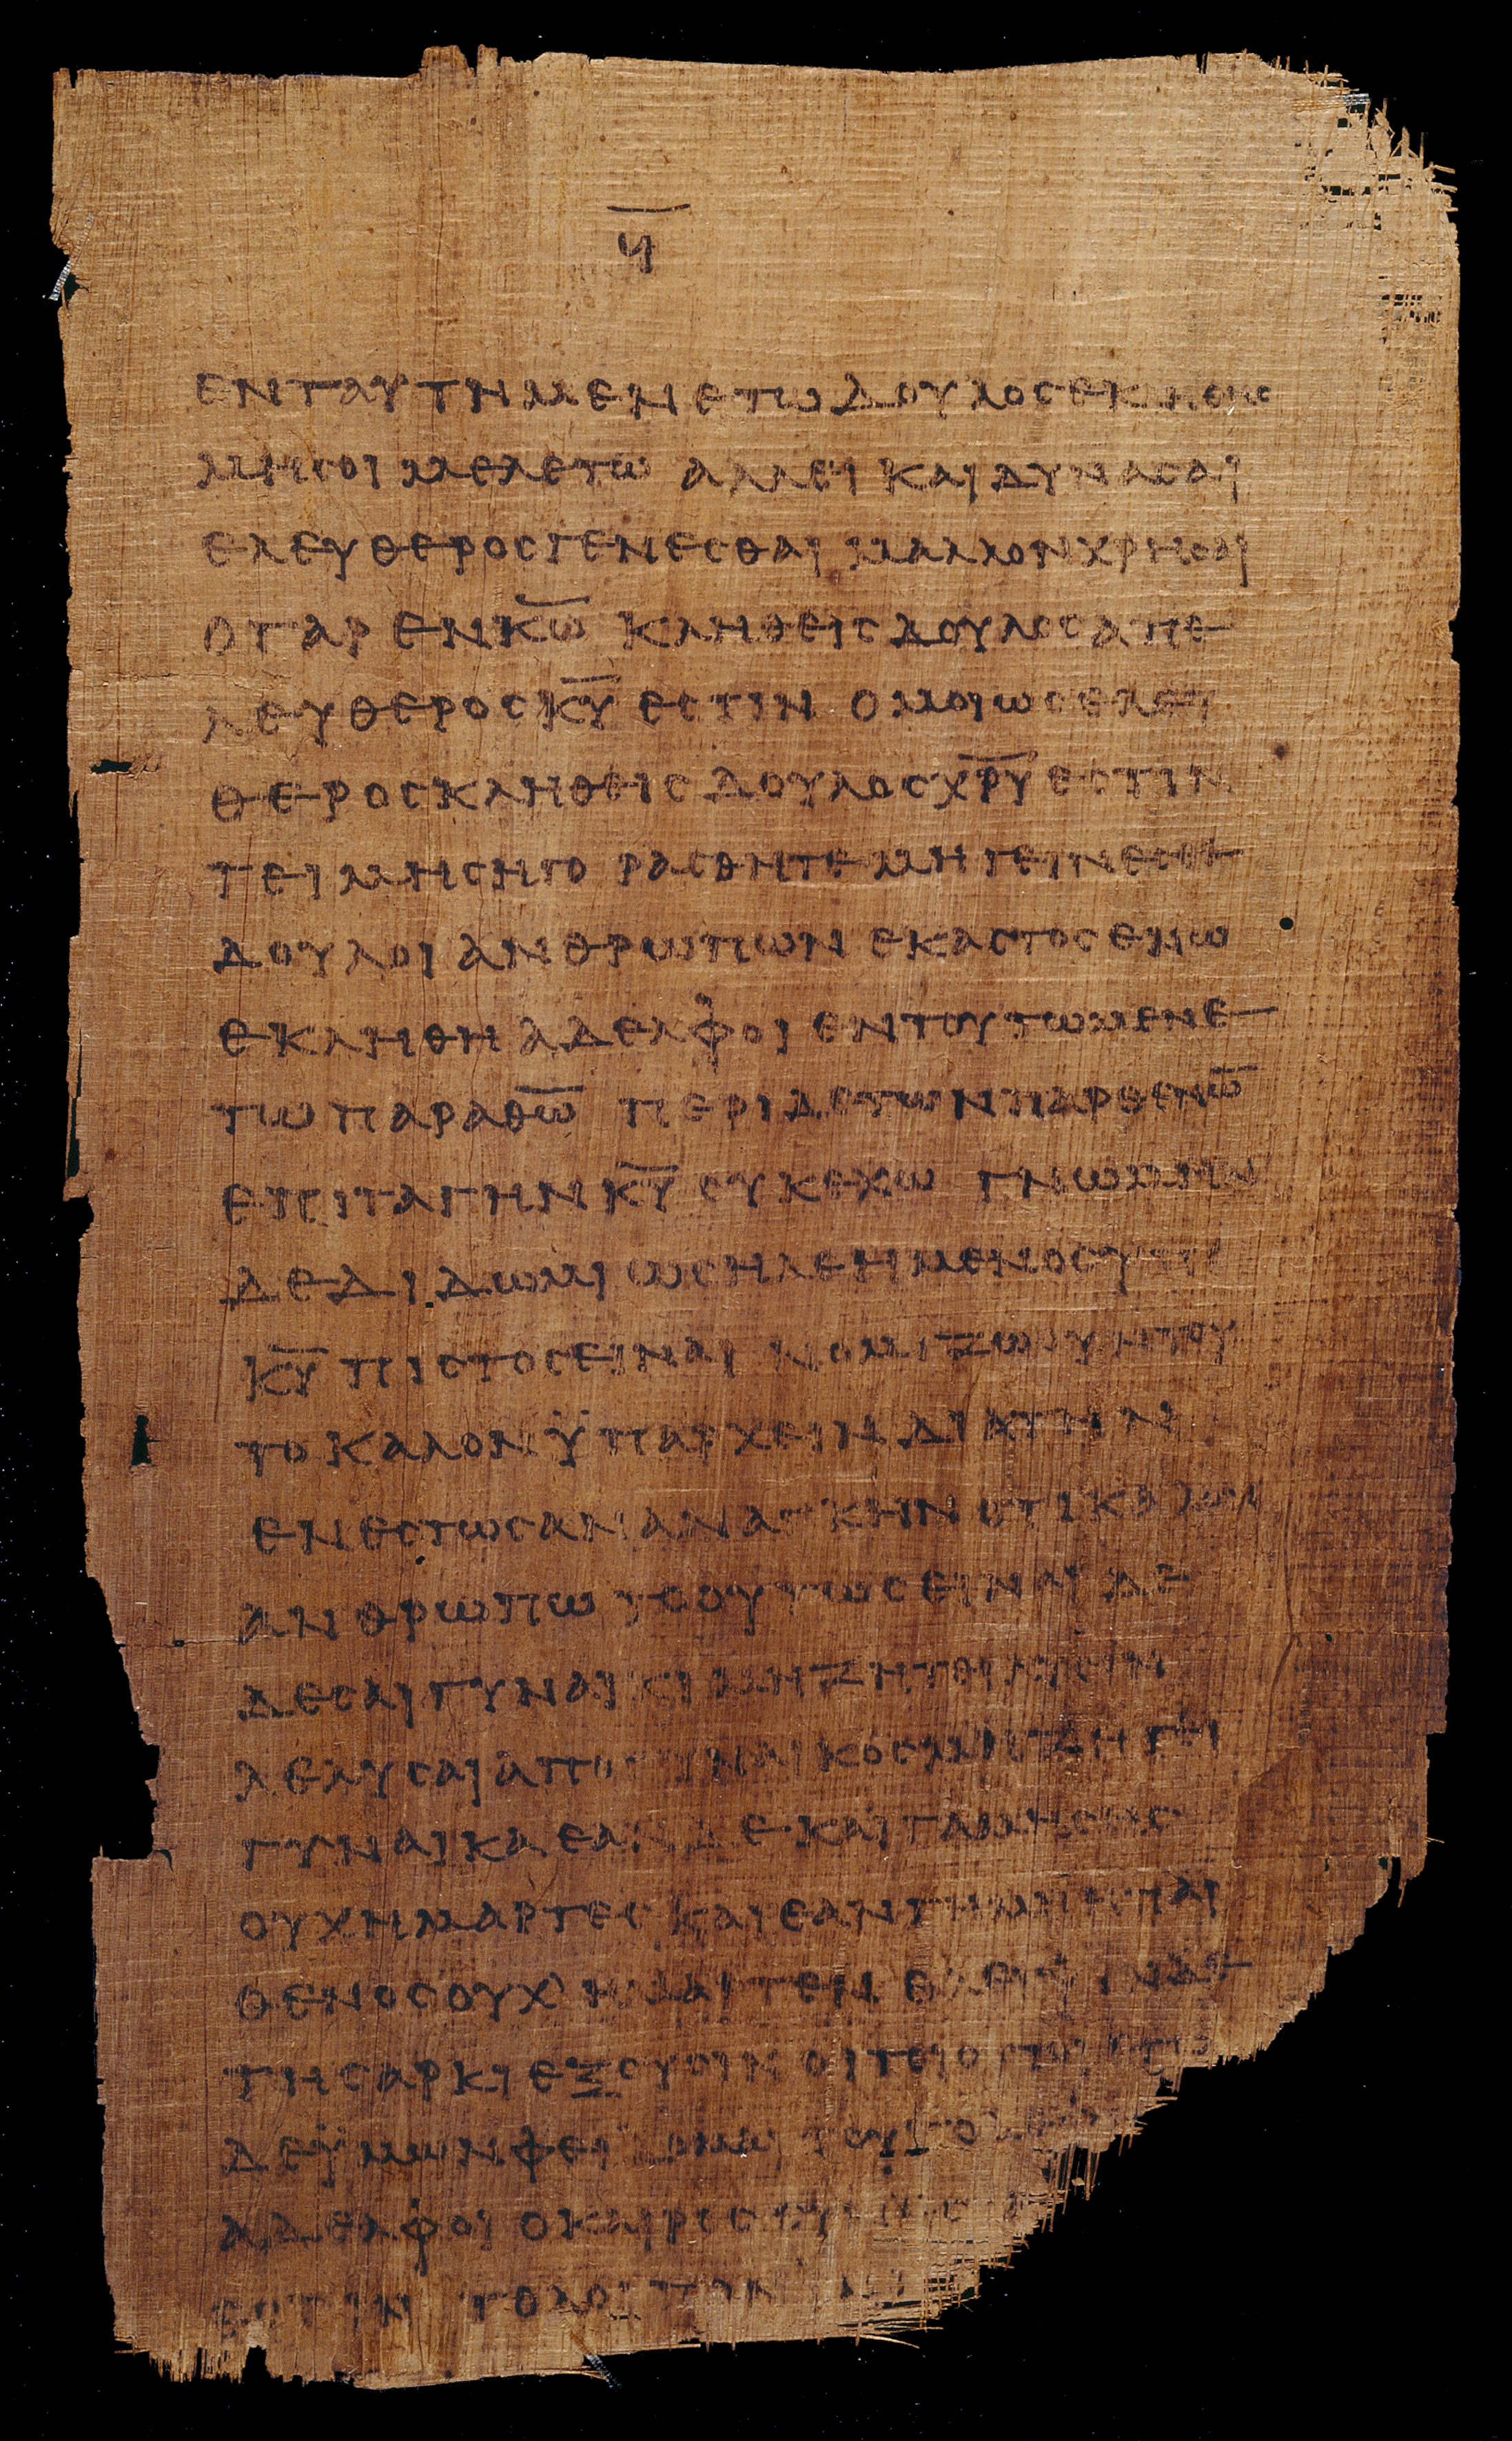 ϥ
ενταυτημενετωδουλοσεκληθησ
μησοιμελετω αλλεικαιδυνασαι
ελευθεροσγενεσθαιμαλλονχρησαι
ογαρενκω κληθεισδουλοσαπε
λευθεροσκυεστιν ομοιωσελευ
θεροσκληθεισδουλοσχρυεστιν
τειμησηγορασθητεμηγεινεσθε
δουλοιανθρωπωνεκαστοσενω
εκληθηαδελφοιεντουτωμενε
τωπαραθω περιδετωνπαρθενω
επιταγηνκυουκεχω γνωμην
δεδιδωμιωσηλεημενοσυπο
κυπιστοσειναι νομιζωουντου
τοκαλονϋπαρχεινδιατην
ενεστωσαναναγκηνοτικαλον
ανθρωπωτοουτωσειναιδε
δεσαιγυναικιμηζητειλυσιν
λελυσαιαπογυναικοσμηζητει
γυναικαεανδεκαιγαμησησ
ουχημαρτεσκαιεανγημηηπαρ
θενοσουχημαρτενθλειψινδε
τησαρκιεξουσινοιτοιουτοιεγω
δεϋμωνφειδομαιτουτο
αδελφοιοκαιροσσυν
εστιν τολοιπον ινα